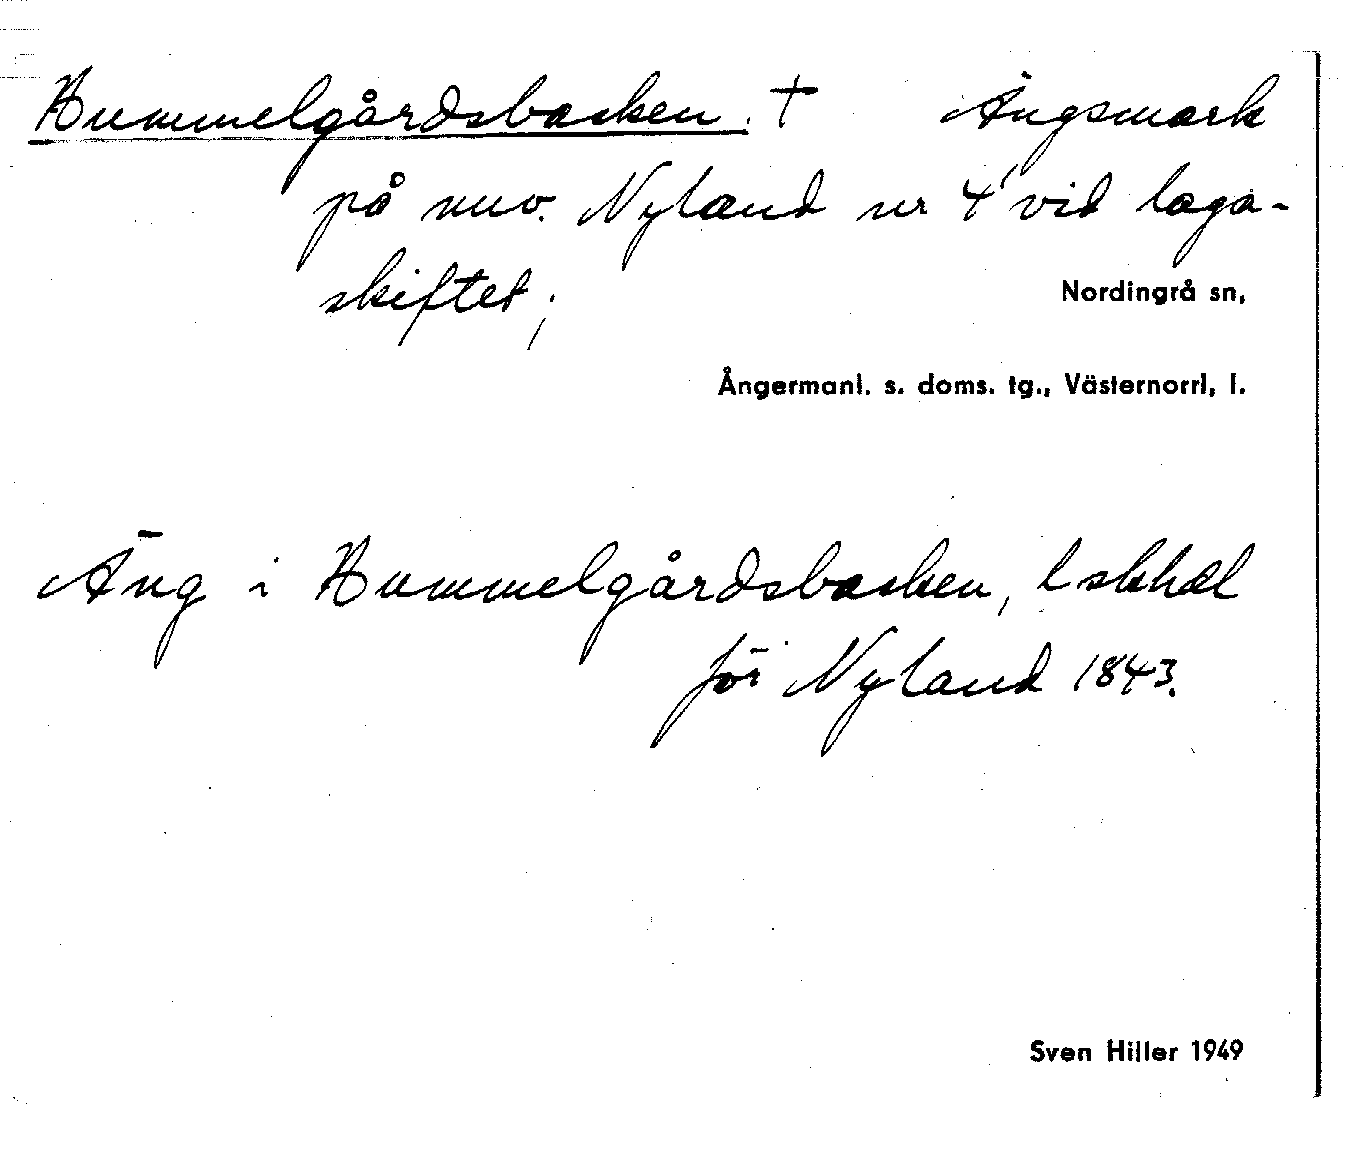 Hummelgårdsbacken. † Ängsmark
på nuv. Nyland nr 4¹ vid laga-
skiftet;
Nordingrå sn,
Ångermanl. s. doms. tg., Västernorrl, l.
Äng i Hummelgårdsbacken, Lskhdl
för Nyland 1843.
Sven Hiller 1949